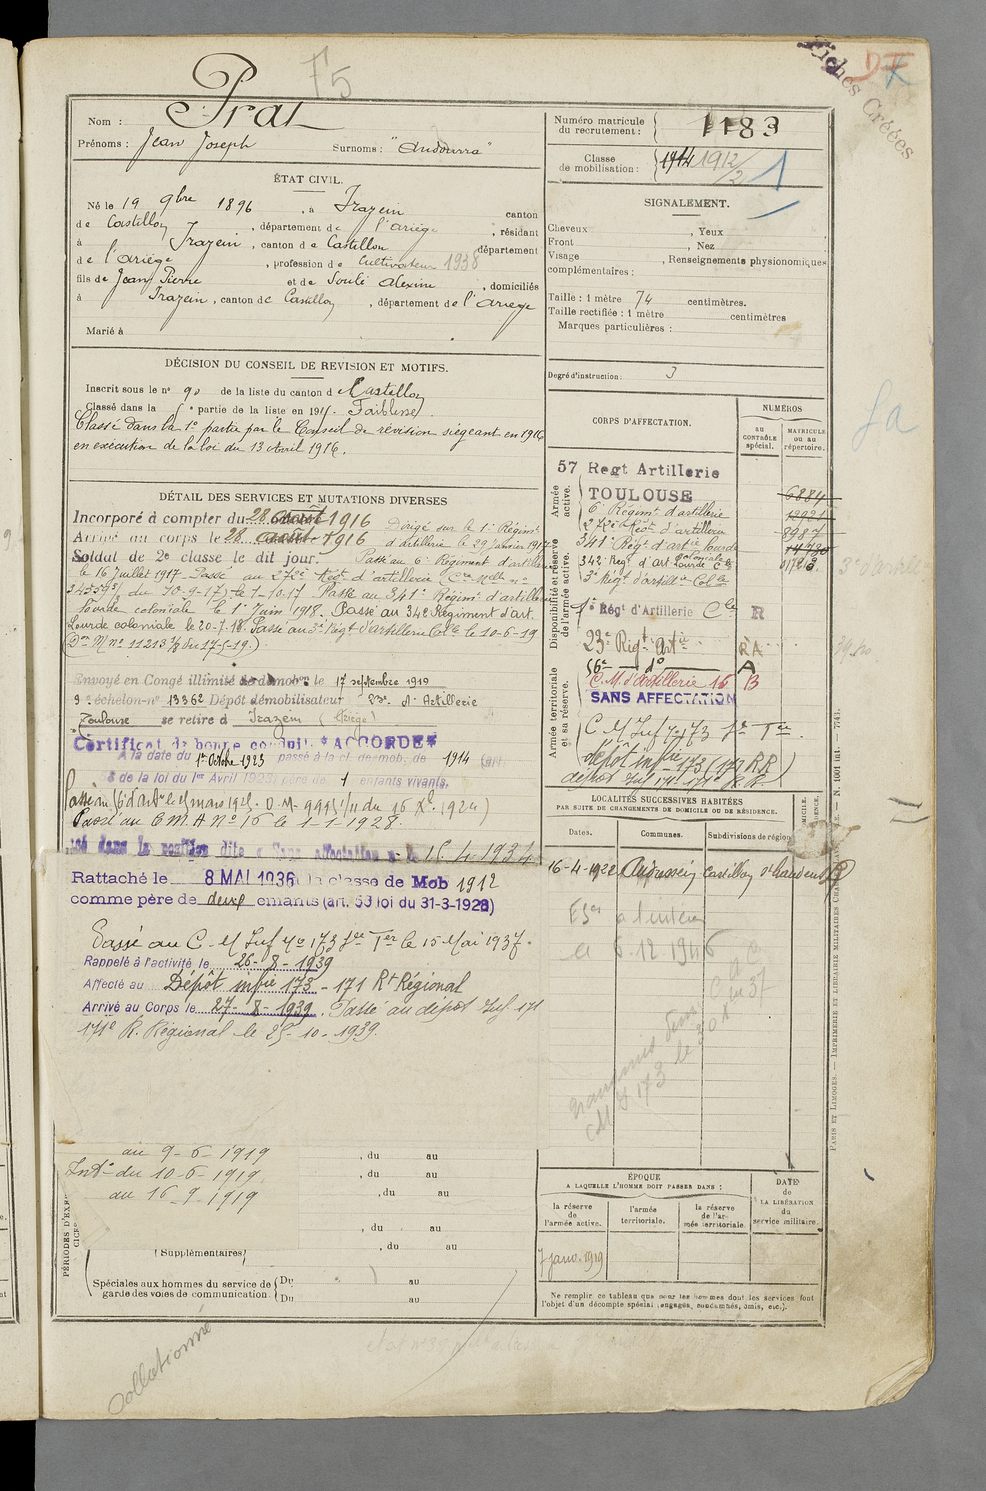 F5
Fiches Créées
Nom : Prat
Prénoms : Jean Joseph Surnoms : "Andourra"
Numéro matricule du recrutement : 1183
Classe de mobilisation : 1914 1912/2 1
ÉTAT CIVIL.
Né le 19 9bre 1896, à Irazein canton
de Castillon, département de l'Ariège, résidant
à Irazein, canton de Castillon département
de l'Ariège, profession de Cultivateur 1938
fils de Jean Pierre et de Soulé Alexine, domiciliés
à Irazein, canton de Castillon, département de l'Ariège
Marié à
SIGNALEMENT.
Cheveux , Yeux
Front , Nez
Visage , Renseignements physionomiques
complémentaires :
Taille : 1 mètre 74 centimètres.
Taille rectifiée : 1 mètre centimètres
Marques particulières :
Degré d'instruction : 3
DÉCISION DU CONSEIL DE REVISION ET MOTIFS.
Inscrit sous le n° 90 de la liste du canton de Castillon
Classé dans la 5e partie de la liste en 191 . Faiblesse
Classé dans la 1e partie par le Conseil de révision siégeant en 1916
en exécution de la loi du 13 Avril 1916.
DÉTAIL DES SERVICES ET MUTATIONS DIVERSES
Incorporé à compter du 28 août 1916
Arrivé au corps le 28 août 1916
Dirigé sur le 1e Régimt
d'artillerie le 29 Janvier 1917
Soldat de 2e classe le dit jour. Passé au 6 Régiment d'artillerie
le 16 Juillet 1917 Passé au 272e Régt d'artillerie
34559 du 10-9-17) le 1-10-17 Passé au 341e Régimt d'artillerie
lourde coloniale le 1er Juin 1918. Passé au 342 Régiment d'art.
Lourde coloniale le 20-7-18. Passé au 3e Régt d'artillerie Cole le 10-6-19
(Don M n° 11213 7/8 du 17-5-19.)
Envoyé en Congé illimité de démobon le 17 septembre 1919
9e échelon-n° 13362 Dépôt démobilisateur 23e d'Artillerie
Toulouse se retire à Irazein (Ariège)
Certificat de bonne conduite "ACCORDÉ"
A la date du 1er Octobre 1923 passé à la cl. de mob. de 1914 (art.
58 de la loi du 1er Avril 1923) père de 1 enfants vivants.
Passé au 16e d'artie le 15 mars 1925. O.M. 9995 1/11 du 16 Xbre 1924)
Passé au C M A N° 16 le 1-1-1928.
dans la position dite « Sans affectation » le 15-4-1934
Rattaché le 8 MAI 1936 à la classe de Mob 1912
comme père de deux enfants (art. 58 loi du 31-3-1928)
Passé au C. M Inf N° 173 Sée Ter le 15 Mai 1937.
Rappelé à l'activité le 26-8-1939
Affecté au Dépôt infie 173 - 171 Rt Régional
Arrivé au Corps le 27-8-1939. Passé au dépôt Inf 171
171e R. Régional le 25-10-1939.
CORPS D'AFFECTATION.
NUMÉROS
au CONTRÔLE spécial.
MATRICULE ou au répertoire.
Armée active.
57 Regt Artillerie
TOULOUSE 6884
6e Régimt d'artillerie
272e Régt d'artillerie 8987
Disponibilité et réserve de l'armée active.
341e Régt d'art lourde
342e Regt d'art Lourde coloniale Cle
3e Régt d'artillie Cole
1e Régt d'Artillerie Cle R
23e Régt Artie R A
16e — do — A
Armée territoriale et sa réserve.
C. M. d'Artillerie 16 B
SANS AFFECTATION
C M Inf N° 173 Sée Ter.
dépôt infie 173 (171 RR)
dépôt Inf 171 - 171e R.R.
LOCALITÉS SUCCESSIVES HABITÉES
PAR SUITE DE CHANGEMENTS DE DOMICILE OU DE RÉSIDENCE.
Dates. Communes. Subdivisions de région
16-4-1922 Audressein Castillon St Gaudens
à l'intérieur
6.12.1946
transmis
CM I 173 le
au 9-6-1919 , du au
Intr du 10-6-1919 , du au
au 16-9-1919 , du au
, du au
(Supplémentaires) , du au
Spéciales aux hommes du service de garde des voies de communication.
Du au
Du au
ÉPOQUE
A LAQUELLE L'HOMME DOIT PASSER DANS :
la réserve de l'armée active.
l'armée territoriale.
la réserve de l'armée territoriale.
DATE de LA LIBÉRATION du service militaire.
7 janv. 1919
Ne remplir ce tableau que pour les hommes dont les services font
l'objet d'un décompte spécial (engagés, condamnés, omis, etc.).
PARIS ET LIMOGES. — IMPRIMERIE ET LIBRAIRIE MILITAIRES
N. 1001 int. — 7541.
collationné